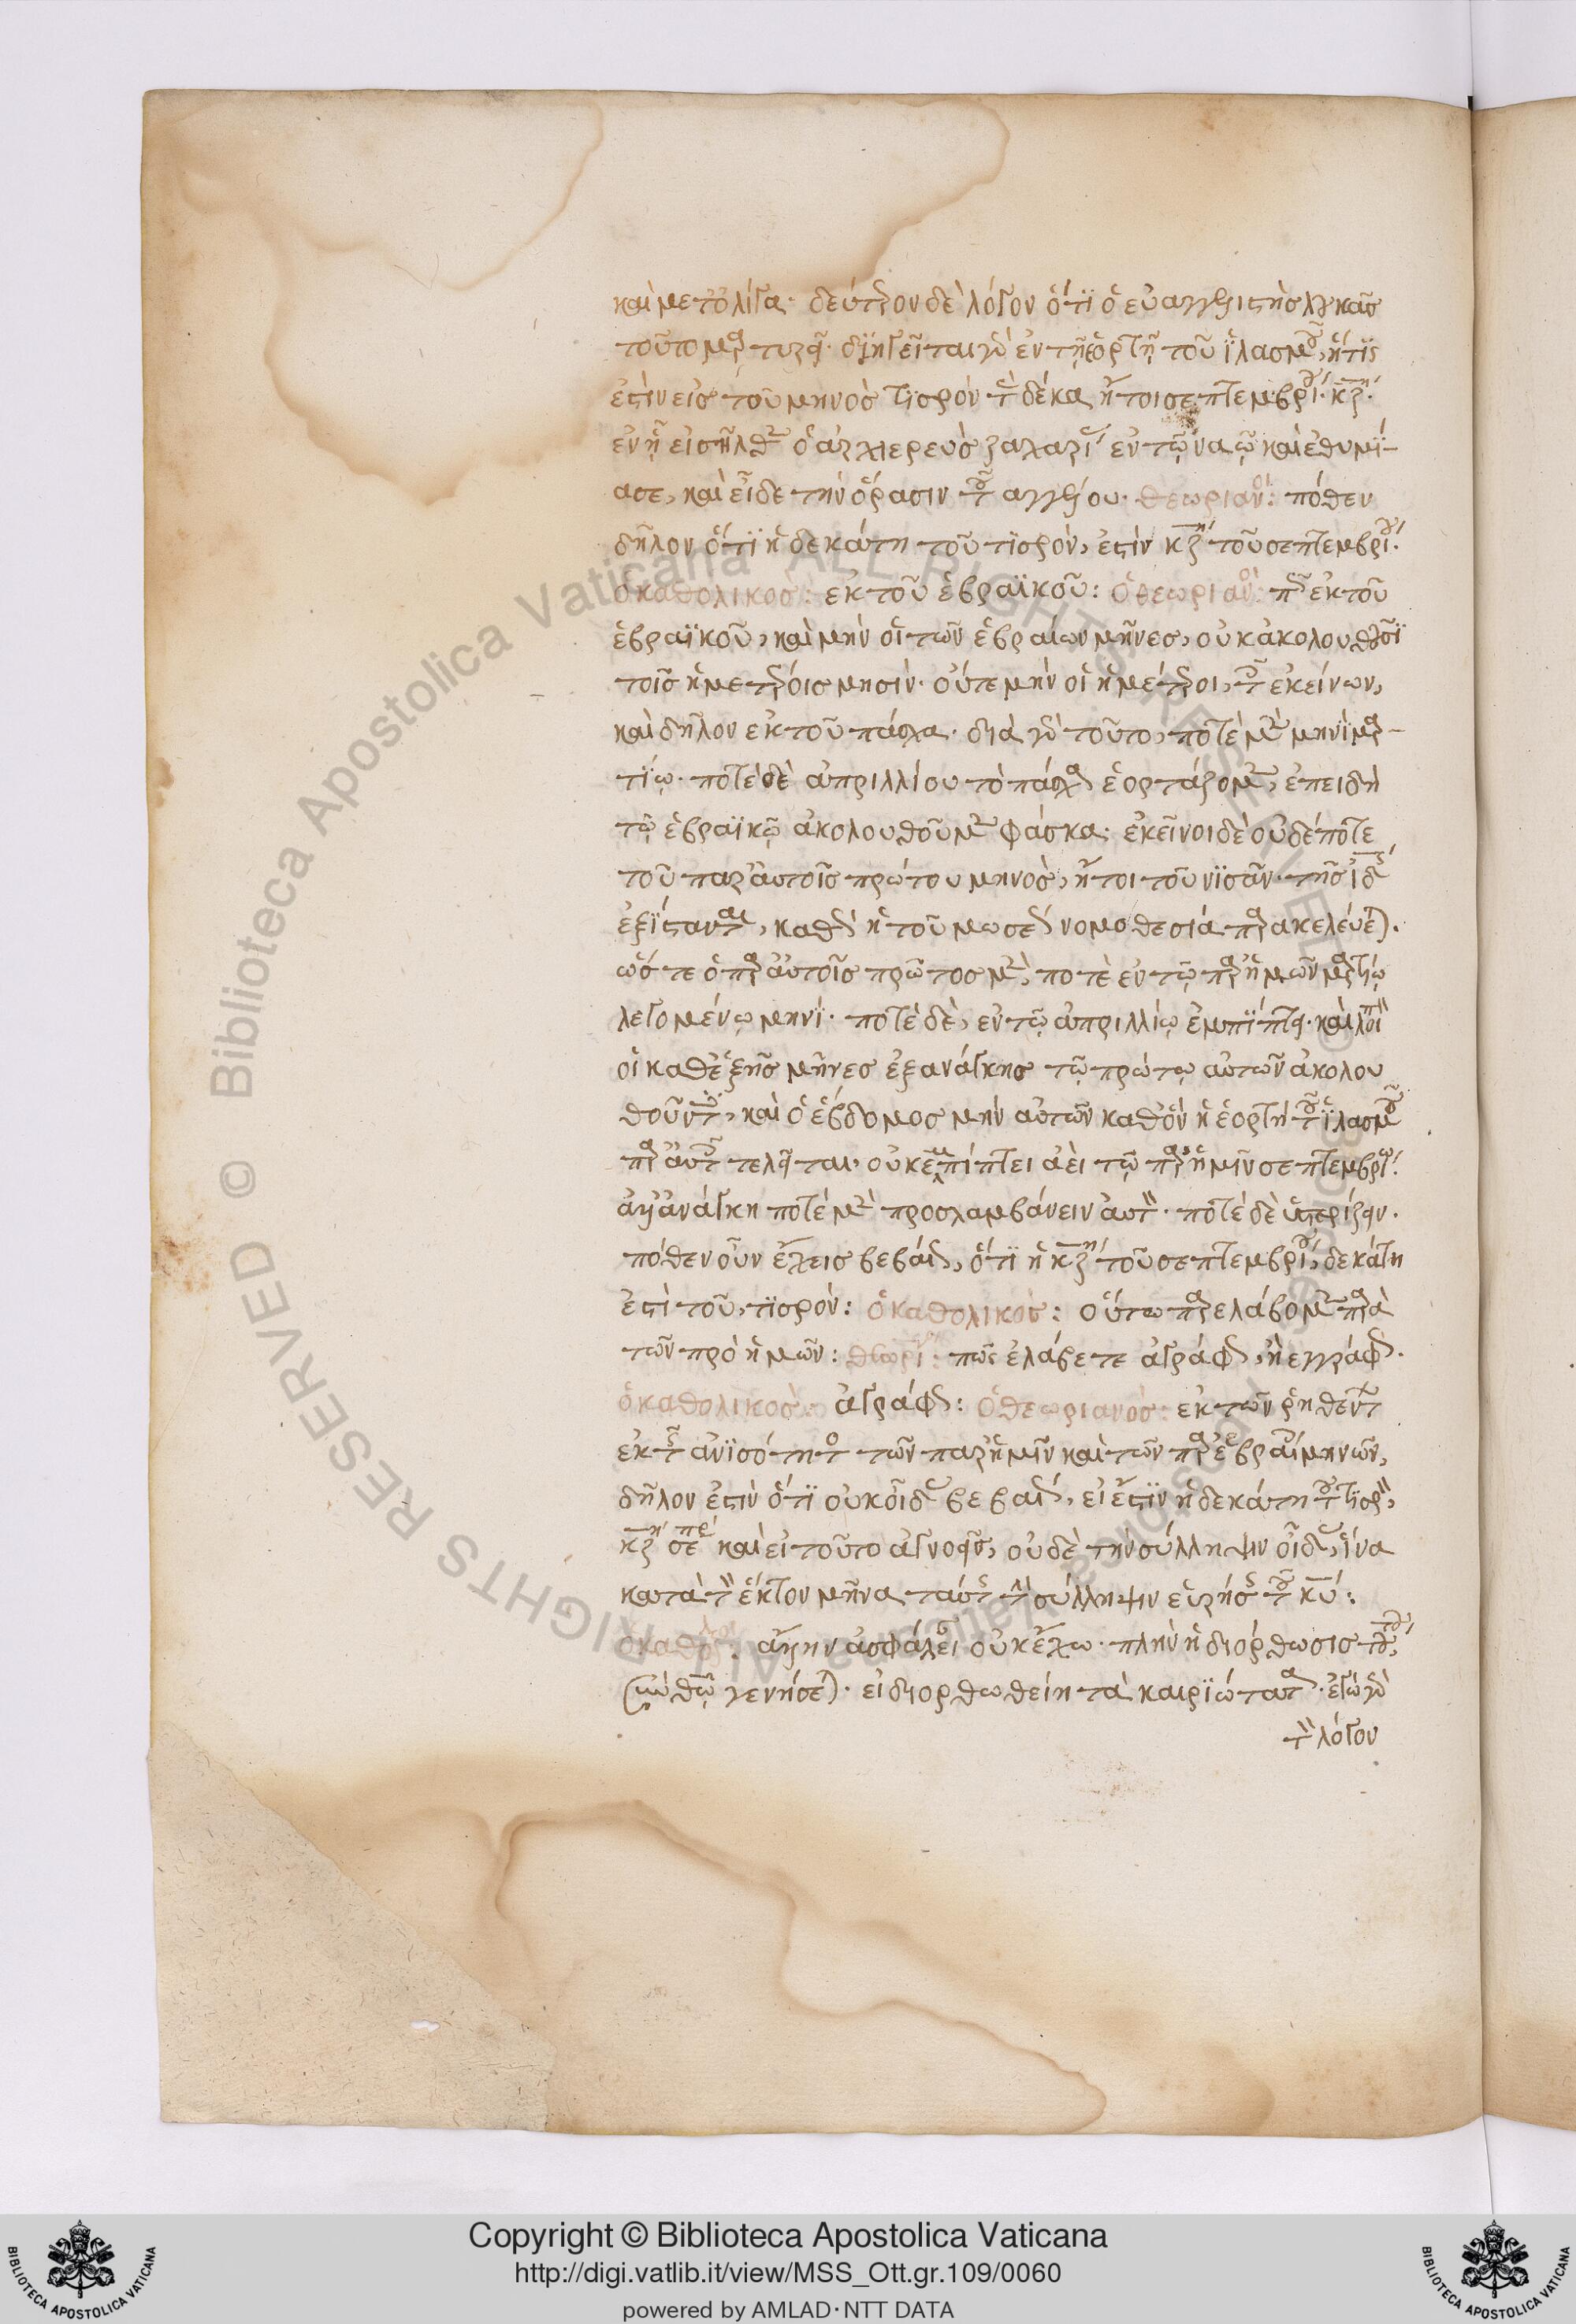 καὶ μετ' ὀλίγα· δεύτερον δὲ λόγον ὅτι ὁ εὐαγγελιστὴς λουκᾶς
τοῦτο μαρτυρεῖ· διηγεῖται γὰρ ἐν τῇ ἑορτῇ τοῦ ἱλασμοῦ, ἥτις
ἐστὶν εἰς τοῦ μηνὸς τισρὸν τὰς δέκα ἤτοι σεπτεμβρίου κζη·
ἐν ᾗ εἰσῆλθεν ὁ ἀρχιερεὺς ζαχαρίας ἐν τῷ ναῷ καὶ ἐθυμί-
ασε, καὶ εἶδε τὴν ὅρασιν τοῦ ἀγγέλου· θεωριανός: πόθεν
δῆλον ὅτι ἡ δεκάτη τοῦ τισρὸν, ἐστὶν κζη τοῦ σεπτεμβρίου·
ὁ καθολικός: ἐκ τοῦ ἑβραϊκοῦ: ὁ θεωριανός: πῶς ἐκ τοῦ
ἑβραϊκοῦ, καὶ μὴν οἱ τῶν ἑβραίων μῆνες, οὐκ ἀκολουθοῦσι
τοῖς ἡμετέροις μησίν· οὔτε μὴν οἱ ἡμέτεροι, τοῖς ἐκείνων,
καὶ δῆλον ἐκ τοῦ πάσχα· διὰ γὰρ τοῦτο, ποτὲ μὲν μηνὶ μαρ-
τίῳ· ποτὲ δὲ ἀπριλλίου τὸ πάσχα ἑορτάζομεν, ἐπειδὴ
τῷ ἑβραϊκῷ ἀκολουθοῦμεν φάσκα· ἐκεῖνοι δὲ οὐδέποτε
τοῦ παρ' αὐτοῖς πρώτου μηνὸς, ἤτοι τοῦ νισᾶν· τῆς ιδ
ἐξίστανται, καθὼς ἡ τοῦ μωσέως νομοθεσία παρακελεύεται·
ὥστε ὁ παρ' αὐτοῖς πρῶτος μὲν, ποτὲ ἐν τῷ παρ' ἡμῶν μαρτίῳ
λεγομένῳ μηνί· ποτὲ δὲ, ἐν τῷ ἀπριλλίῳ ἐμπίπτει· καὶ λοιπὸν
οἱ καθεξῆς μῆνες ἐξανάγκης τῷ πρώτῳ αὐτῶν ἀκολου
θοῦντες, καὶ ὁ ἕβδομος μὴν αὐτῶν καθ' ὃν ἡ ἑορτὴ τοῦ ἱλασμοῦ
παρ' αὐτοῖς τελεῖται· οὐκ ἐμπίπτει ἀεὶ τῷ παρ' ἡμῖν σεπτεμβρίῳ·
ἀλλ' ἀνάγκη ποτὲ μὲν προσλαμβάνειν αὐτὸν· ποτὲ δὲ ὑστερίζειν·
πόθεν οὖν ἔχεις βεβαίως, ὅτι ἡ κζη τοῦ σεπτεμβρίου, δεκάτη
ἐστὶ τοῦ, τισρὸν: ὁ καθολικός: οὕτω παρελάβομεν παρὰ
τῶν πρὸ ἡμῶν: θεωριανός: πῶς ἐλάβετε ἀγράφως, ἢ ἐγγράφως·
ὁ καθολικός: ἀγράφως: ὁ θεωριανός: ἐκ τῶν ῥηθέντων
ἐκ τῆς ἀνισότητος τῶν παρ' ἡμῖν καὶ τῶν παρ' ἑβραίοις μηνῶν,
δῆλον ἐστὶν ὅτι οὐκ οἶδας βεβαίως, εἰ ἔστιν ἡ δεκάτη τοῦ τισρὸν,
κζη σεπτεμβρίου καὶ εἰ τοῦτο ἀγνοεῖς, οὐδὲ τὴν σύλληψιν οἶδας, ἵνα
κατὰ τὸν ἕκτον μῆνα ταύτης τὴν σύλληψιν εὑρήσεις τοῦ κυ:
ὁ καθολικός: ἄλλην ἀσφάλειαν οὐκ ἔχω· πλὴν ἡ διόρθωσις τούτου,
σὺν θεῷ γενήσεται· εἰ διορθωθείη τὰ καιριώτατα· ἐγὼ γὰρ
τὸν λόγον
Copyright © Biblioteca Apostolica Vaticana
http://digi.vatlib.it/view/MSS_Ott.gr.109/0060
powered by AMLAD·NTT DATA